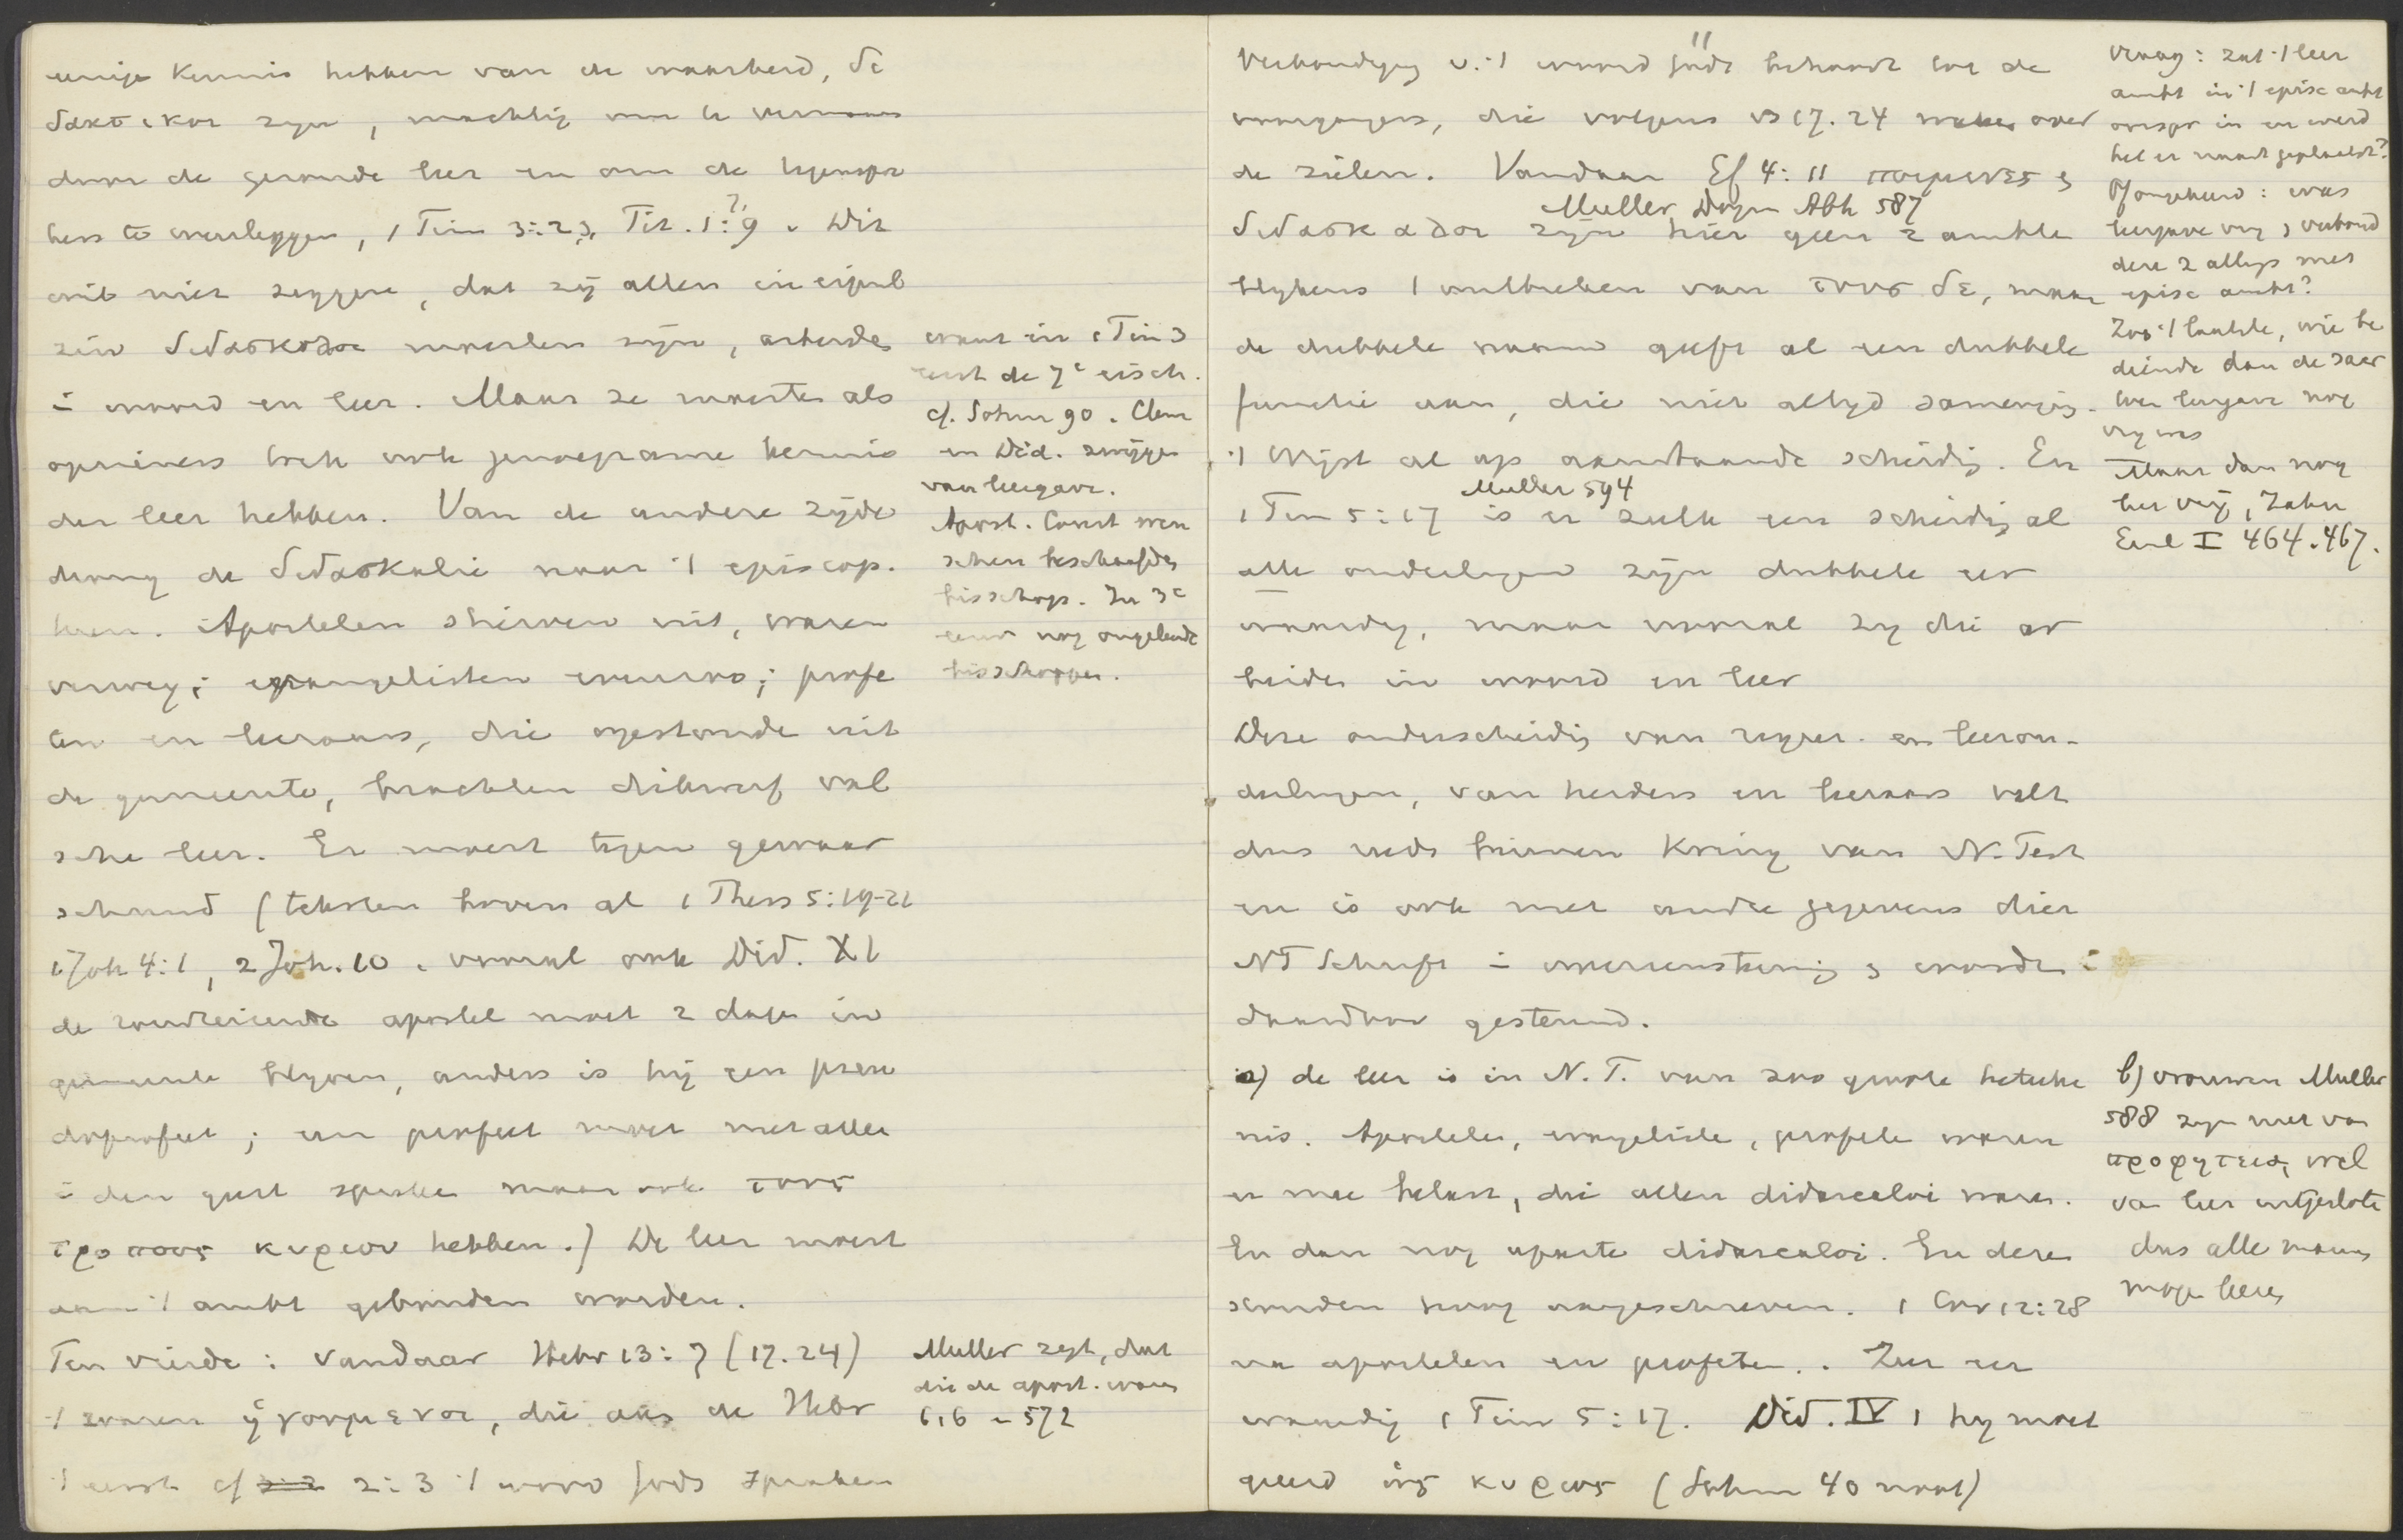 eenige kennis hebben van de waarheid, δι
δακτικοι zijn, machtig om te vermanen
door de gezonde leer en om de tegenspre
kers te wederleggen, 1 Tim 3:2, Tit. 1:9. Dit
wil niet zeggen, dat zij allen in eigenl
zin διδασκαλοι moesten zijn, arbeidde
i woord en leer. Maar ze moesten als
opzieners toch ook genoegzame kennis
der leer hebben. Van de andere zijde
drong de διδασκαλie naar 't episcop.
heen. Apostelen stierven uit, waren
verweg; evangelisten eveneens; profe
ten en leeraars, die opstonden uit
de gemeente, brachten dikwerf val
sche leer. Er moest tegen gewaar
schuwd (teksten boven al 1 Thess 5:19-21
1 Joh 4:1, 2 Joh. 10. vooral ook Did. XI
de rondreizende apostel moet 2 dagen in
gemeente blijven, anders is hij een pseu
doprofeet; een profeet moet niet alleen
i den geest spreken maar ook τους
τροπους κυριου hebben.) De leer moest
aan 't ambt gebonden worden.
Ten vierde: vandaar Hebr 13:7 (17.24)
't waren ἡγουμενοι, die aan de Hebr
't eerst cf 2:3 't woord Gods spraken
waar in 1 Tim 3
eerst de 7e eisch.
cf. Sohm 90. Clem
en Did. zwijgen
van leergave.
Apost. Const wen
schen beschaafde
bisschop. In 3e
eeuw nog ongeleerde
bisschoppen.
Muller zegt, dat
die de apost. waren
616 - 572
11
Verkondiging v. 't woord Gods behoort tot de
voorgangers, die volgens vs 17. 24 waken over
de zielen. Vandaar Ef 4:11 ποιμενες &
Muller, Dogm Abh 587
διδασκαλοι zijn hier geen 2 ambten
blijkens 't ontbreken van τους δε, maar
de dubbele naam geeft al een dubbele
functie aan, die niet altijd samenging.
't Wijst al op aanstaande scheiding. En
Muller 594
1 Tim 5:17 is er zulk een scheiding al
alle ouderlingen zijn dubbele eer
waardig, maar vooral zij die ar
beiden in woord en leer
Deze onderscheiding van regeer- en leerou-
derlingen, van herders en leeraars valt
dus reeds binnen kring van N. Test
en is ook met andere gegevens dier
NT Schrift i overeenstemming & worden i
daardoor gesteund.
a) de leer is in N. T. van zoo groote beteeke
nis. Apostelen, evangeliste, profete waren
er mee belast, die allen didascaloi waren.
En dan nog aparte didascaloi. En deze
stonden hoog aangeschreven. 1 Cor 12:28
na apostelen en profeten. Zeer eer
waardig 1 Tim 5:17. Did. IV 1 hij moet
geëerd ὡς κυριος (Sohm 40 noot)
vraag: zat 't leer
ambt in 't episc ambt
oorspr in en werd
het er naast geplaatst?
Of omgekeerd: was
leergave vrij & verbond
deze 2 allengs met
episc ambt?
Zoo 't laatste, wie be
diende dan de sacr
toen leergave nog
vrij was
Maar dan nog
leer vrij, Zahn
Einl I 464. 467.
b) vrouwen Muller
588 zijn niet van
προφητεια, wel
van leer uitgesloten
dus alle mannen
mogen leeren